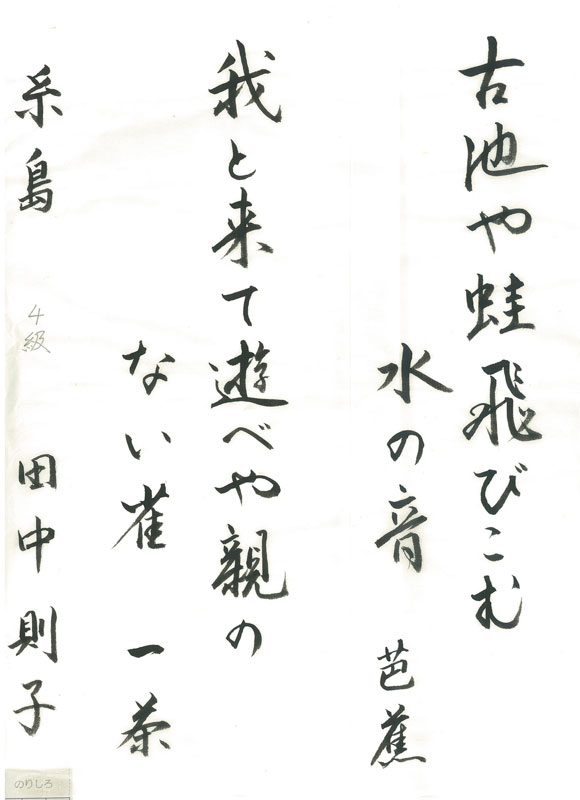 古池や蛙飛びこむ
水の音 芭蕉
我と来て遊べや親の
ない雀 一茶
糸島 4級 田中則子
のりしろ